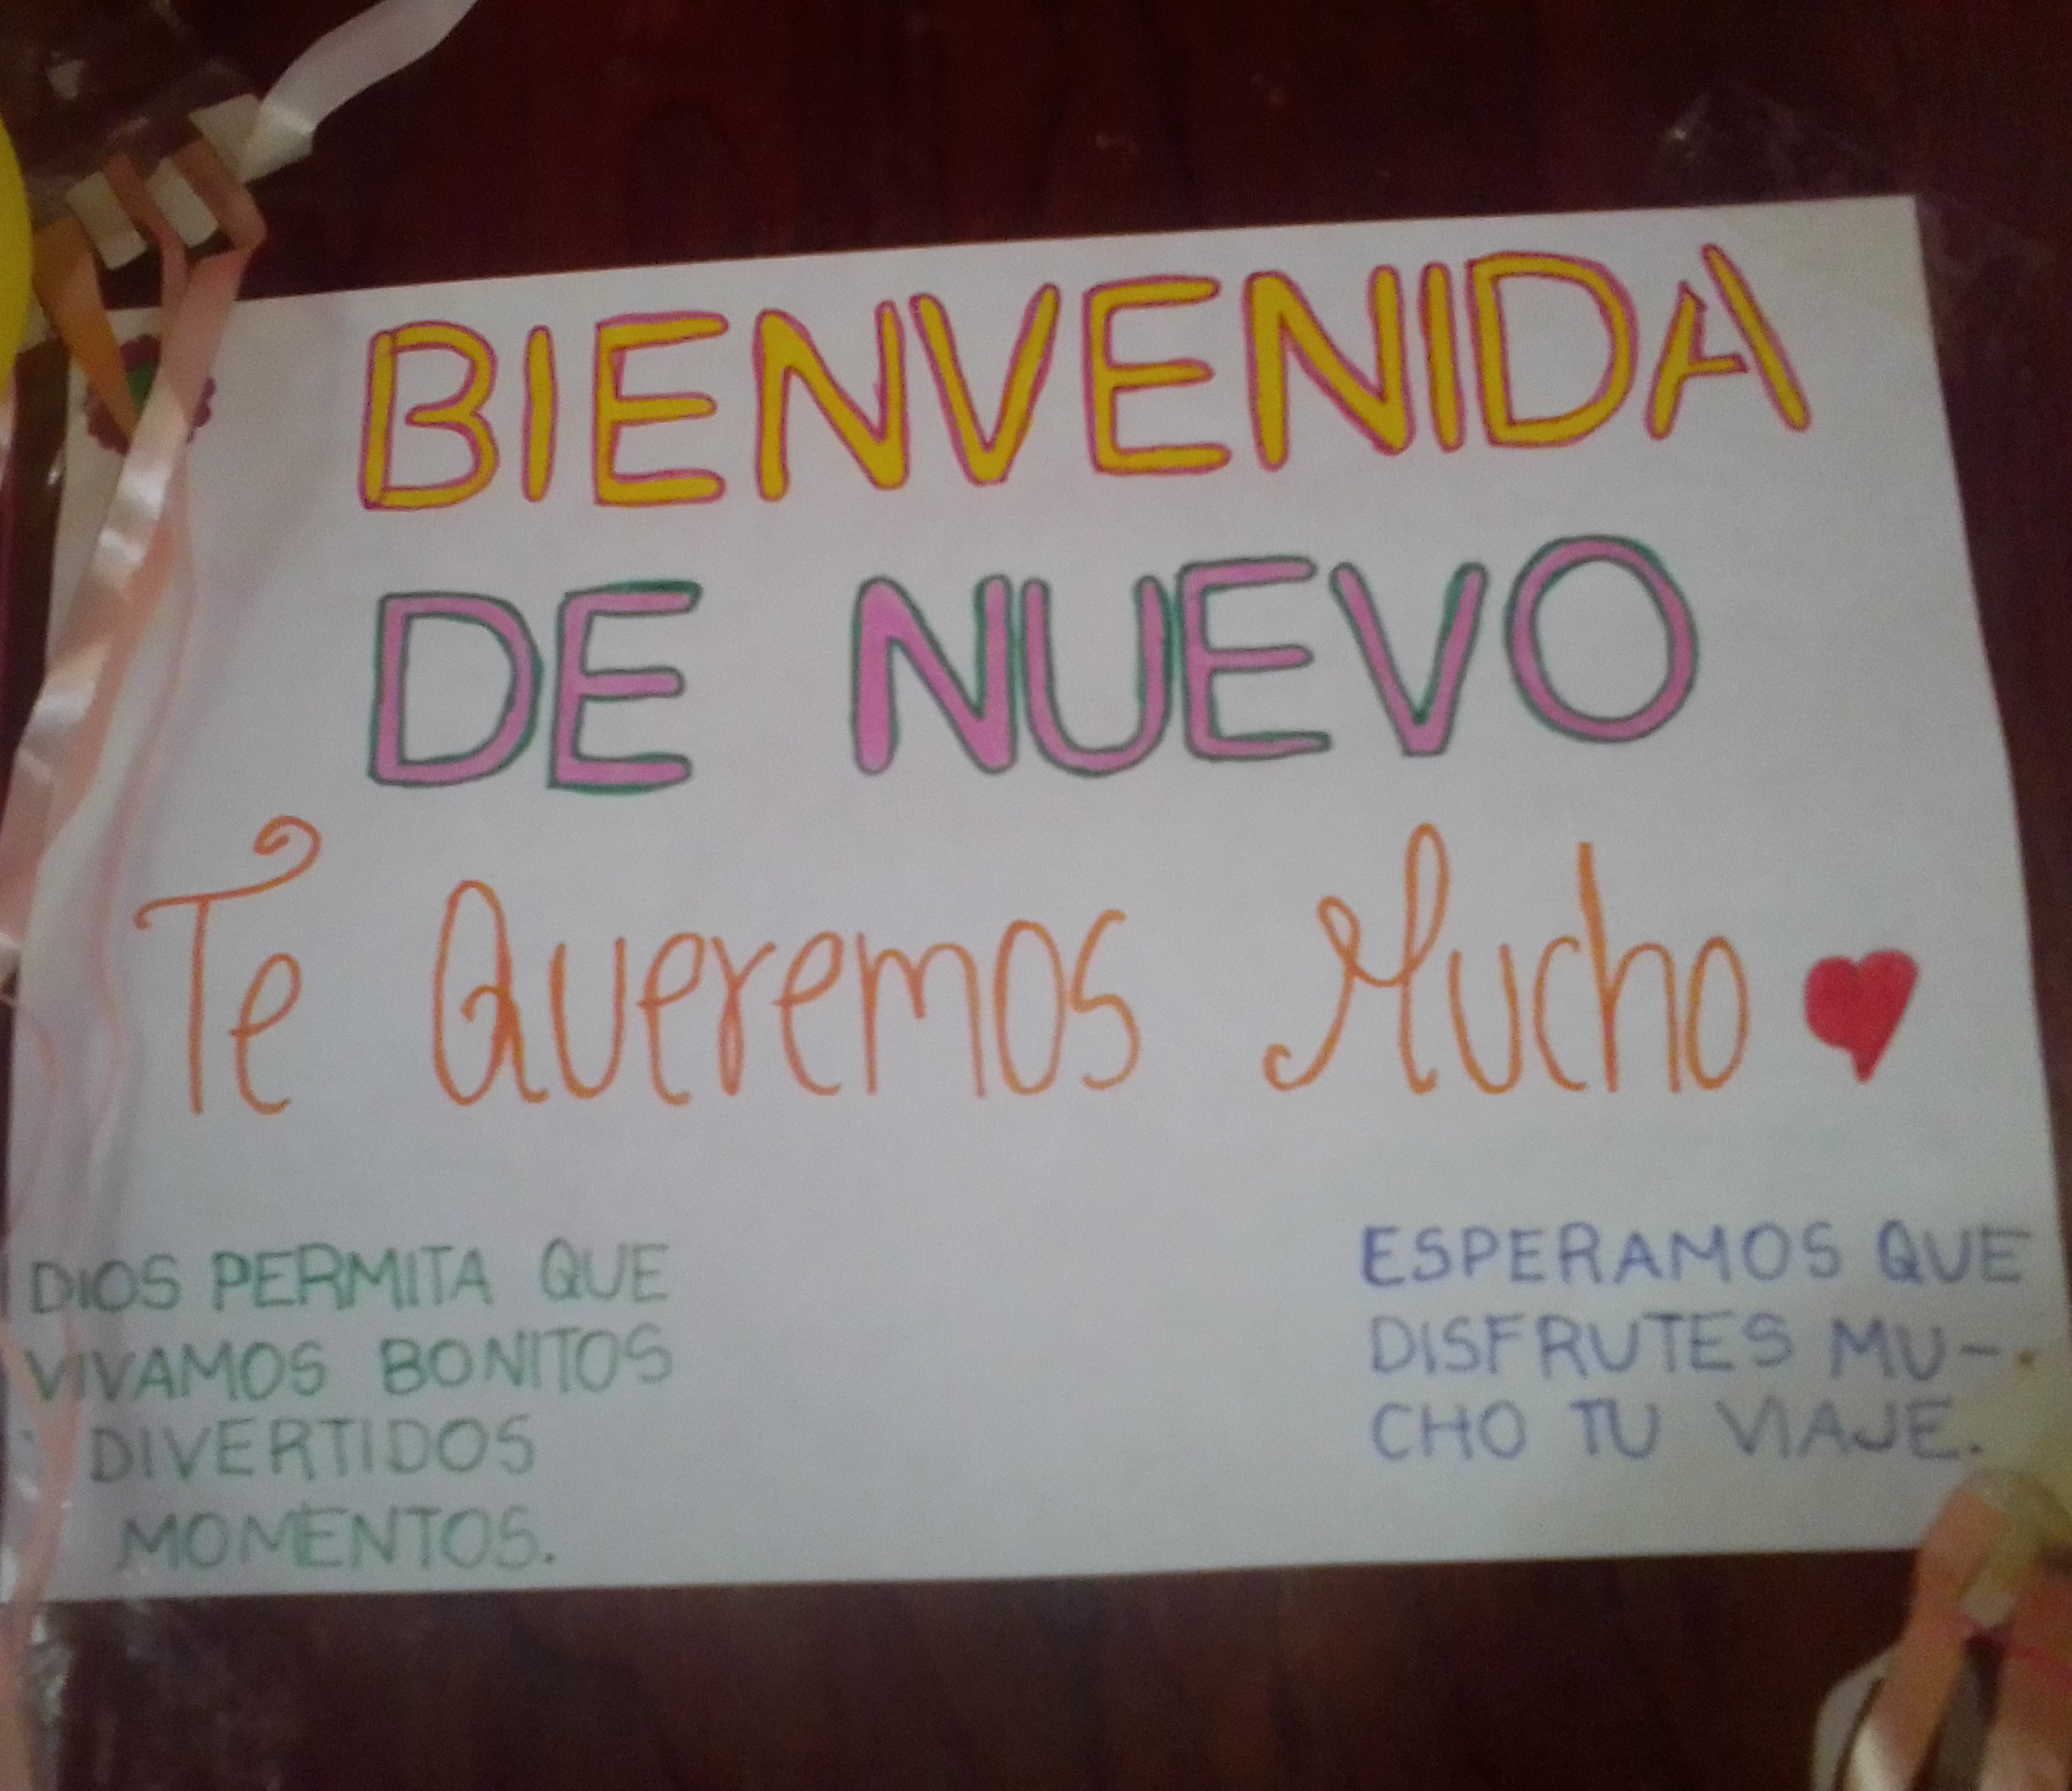 BIENVENIDA
DE NUEVO
Te Queremos Mucho
DIOS PERMITA QUE
VIVAMOS BONITOS
Y DIVERTIDOS
MOMENTOS.
ESPERAMOS QUE
DISFRUTES MU-
CHO TU VIAJE.